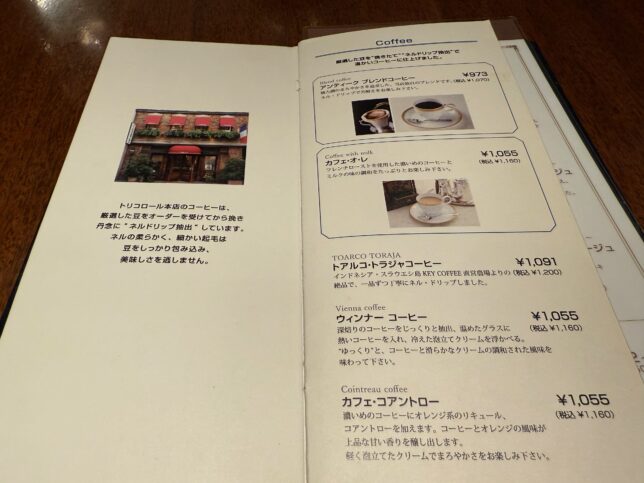 トリコロール本店のコーヒーは、
厳選した豆をオーダーを受けてから挽き
丹念に"ネルドリップ抽出"しています。
ネルの柔らかく、細かい起毛は
豆をしっかり包み込み、
美味しさを逃しません。
Coffee
厳選した豆を"挽きたて""ネルドリップ抽出"で
温かいコーヒーに仕上げました。
Blend coffee
アンティーク ブレンドコーヒー ¥973
(税込 ¥1,070)
ネル・ドリップで芳醇さをお楽しみ下さい。
Coffee with milk
カフェ・オ・レ ¥1,055
フレンチローストを使用した濃いめのコーヒーと (税込 ¥1,160)
ミルクの味の調和をたっぷりとお楽しみ下さい。
TOARCO TORAJA
トアルコ・トラジャコーヒー ¥1,091
インドネシア・スラウエシ島 KEY COFFEE 直営農場よりの (税込 ¥1,200)
絶品で、一品ずつ丁寧にネル・ドリップしました。
Vienna coffee
ウィンナー コーヒー ¥1,055
深焙りのコーヒーをじっくりと抽出、温めたグラスに (税込 ¥1,160)
熱いコーヒーを入れ、冷えた泡立てクリームを浮かべる。
"ゆっくり"と、コーヒーと滑らかなクリームの調和された風味を
味わって下さい。
Cointreau coffee
カフェ・コアントロー ¥1,055
濃いめのコーヒーにオレンジ系のリキュール、 (税込 ¥1,160)
コアントローを加えます。コーヒーとオレンジの風味が
上品な甘い香りを醸し出します。
軽く泡立てたクリームでまろやかさをお楽しみ下さい。